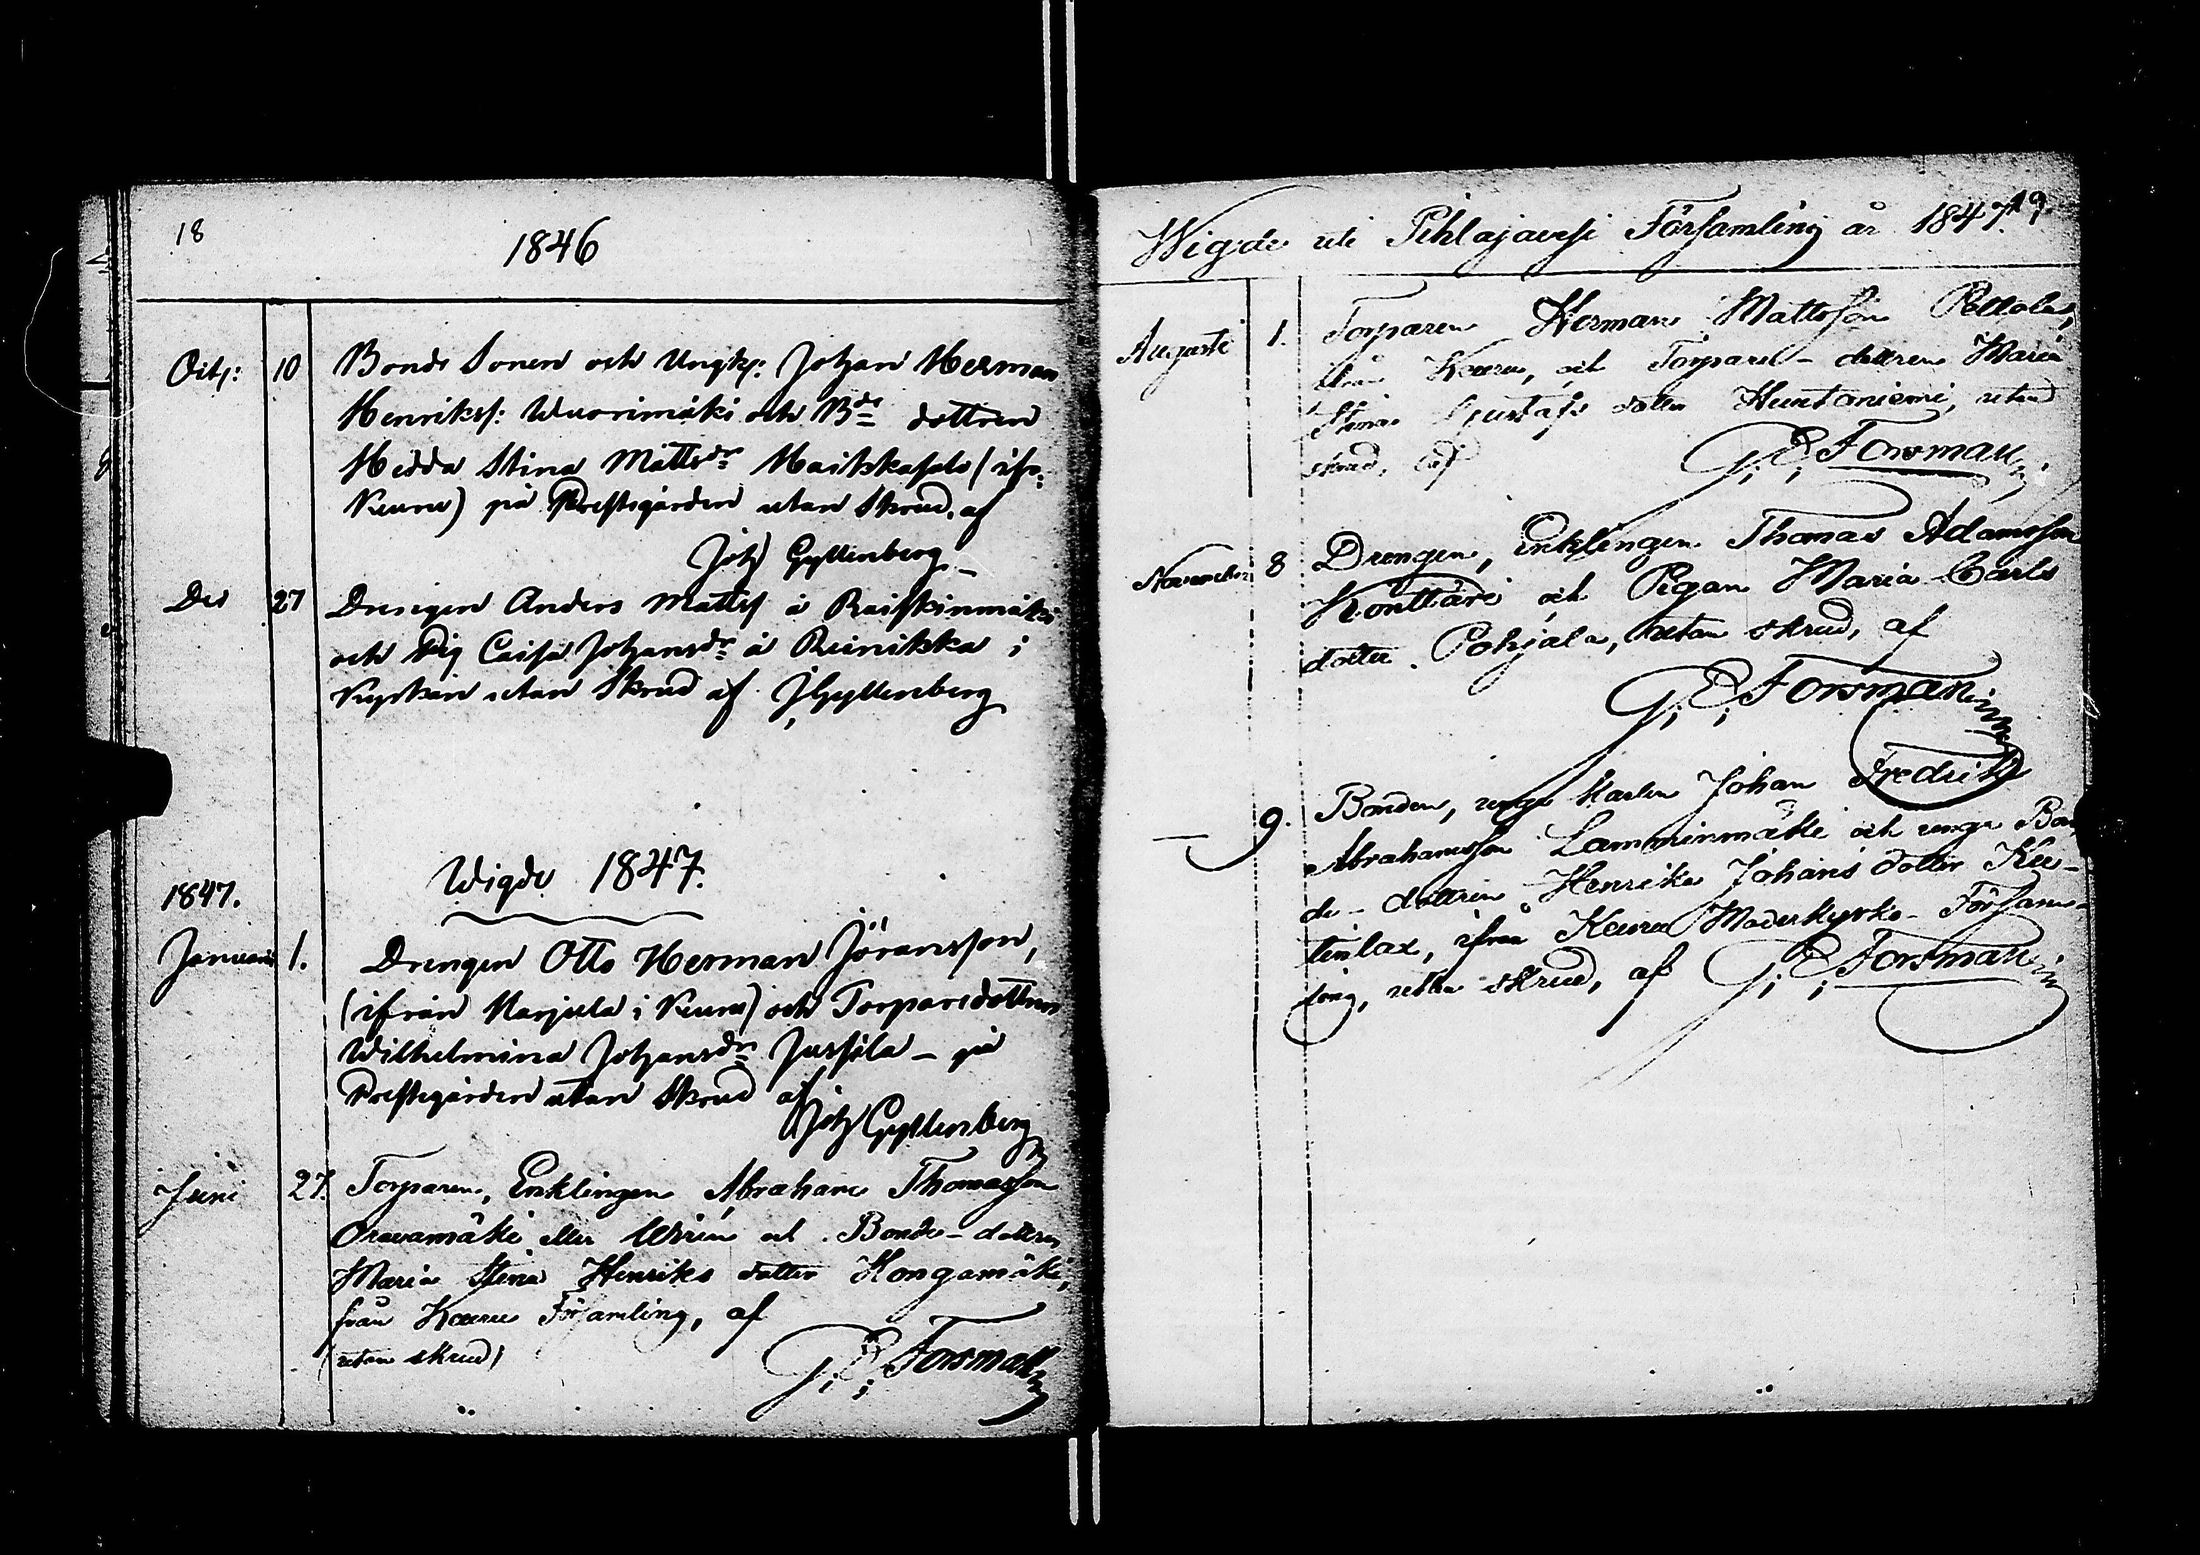 18
1846
Octb: 10 Bonde Sonen och Ungk: Johan Herman
Henriksf: Wuorimäki och Bde dottren
Hedda Stina Mattsdr Maikkasalo (ifr:
Keuru) på Prestgården utan Skrud, af
Joh Gyllenberg
Des 27 Drengen Anders Mattsf å Raiskinmäki
och Pig Caisa Johansdr å Reinikka i
Kyrkan utan Skrud af J Gyllenberg
Wigde 1847.
1847.
Januari 1. Drengen Otto Herman Jöransson,
(ifrån Marjula i Keuru) och Torparedottren
Wilhelmina Johansdr Jussila – på
Prestegården utan Skrud af
Joh Gyllenberg
Juni 27. Torparen, Enklingen Abraham Thomasson
Oravamäki eller och Bonde-dottren
Maria Stina Henriks dotter Kongamäki,
från Keuru Församling, af
(utan skrud)
G: E: Forsman
19
Wigde uti Pihlajavesi Församling år 1847.
Augusti 1. Torparen Herman Mattsson Peltola,
ifrån Keuru, och Torpare-dottren Maria
Stina Gustafs dotter Huntaniemi, utan
skrud, af
G: E: Forsman
November 8 Drengen, Enklingen Thomas Adamsson
Konttäri och Pigan Maria Carls
dotter Pohjala, utan skrud, af
G: E: Forsman
— 9. Bonden, unge Karlen Johan Fredrik
Abrahamsson Lamminmäki och unga Bon
de-dottren Henrika Johans dotter Keu-
tinlax, ifrån Keuru Moderkyrko-Försam-
ling, utan skrud, af G: E: Forsman